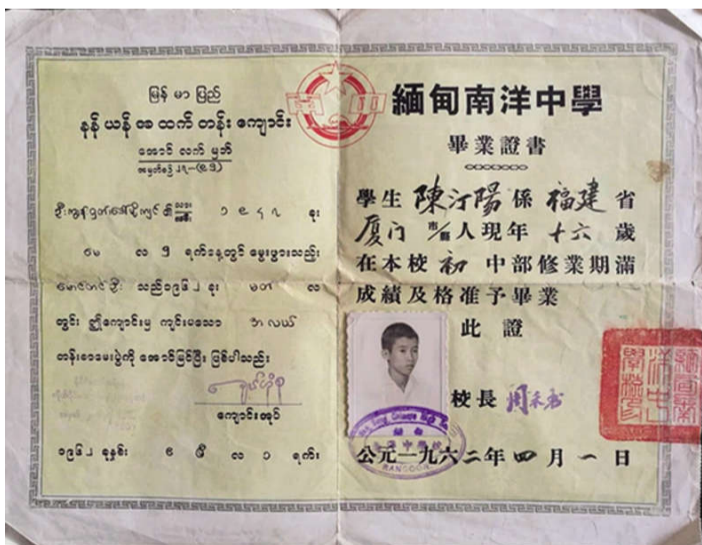 မြန်မာပြည်
နန်ယန်အထက်တန်းကျောင်း
အောင်လက်မှတ်
၁၉၄၇ ခု
မေ လ ၅ ရက်နေ့တွင် မွေးဖွားသည့်
သည် ၁၉၆၂ ခု မတ် လ
တွင် ဤကျောင်းမှ ကျင်းပသော အလယ်
တန်းစာမေးပွဲကို အောင်မြင်ပြီး ဖြစ်ပါသည်။
ကျောင်းအုပ်
၁၉၆၂ ခုနှစ် ဧပြီ လ ၁ ရက်။
南中
緬甸南洋中學
畢業證書
學生 陳汀陽 係 福建 省
厦门 市縣 人現年 十六 歲
在本校 初 中部修業期滿
成績及格准予畢業
此證
校長
RANGOON
公元一九六二年四月一日